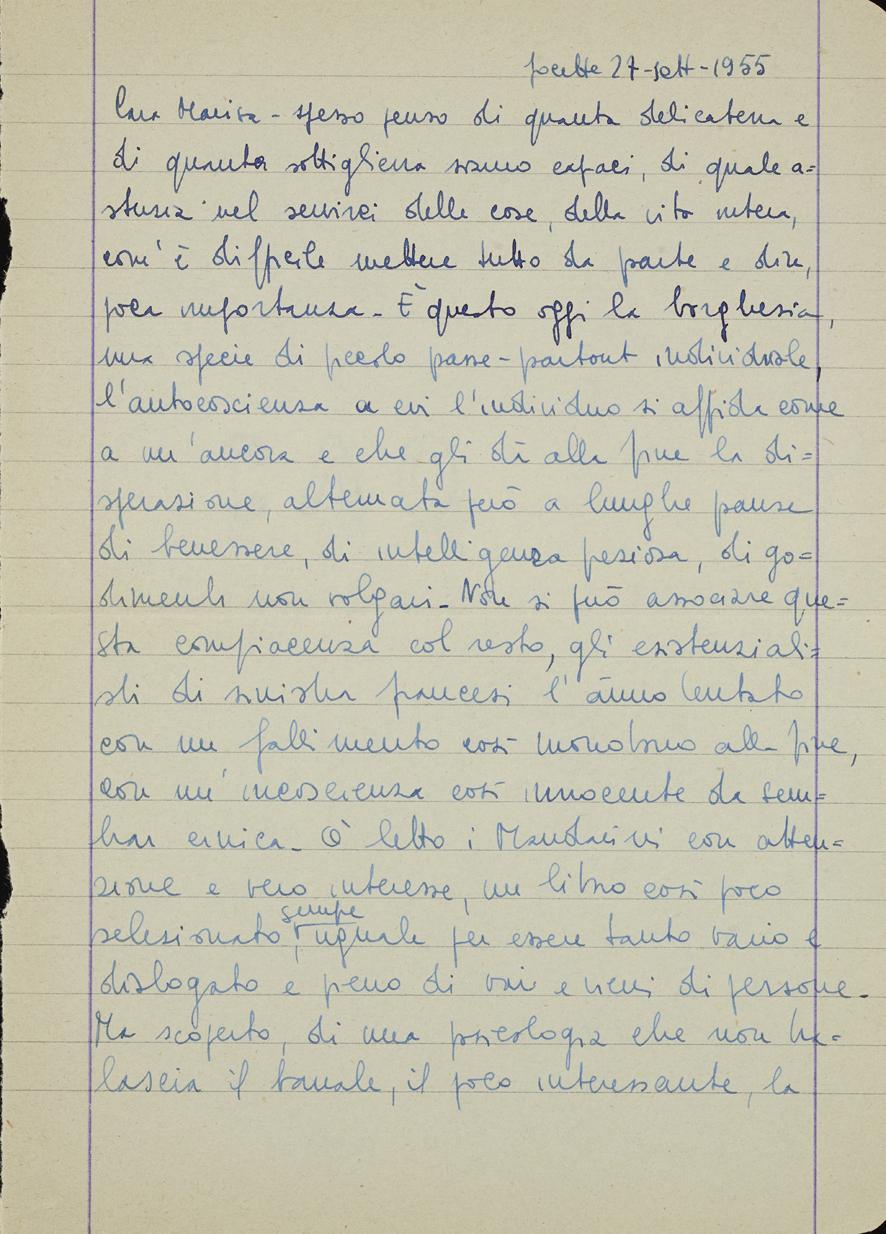 focette 27-sett-1955
Cara Marisa - spesso penso di quanta delicatezza e
di quanta sottigliezza siamo capaci, di quale a=
stuzia nel servirci delle cose, della vita intera,
com'è difficile mettere tutto da parte e dire,
poca importanza - È questo oggi la borghesia,
una specie di piccolo passe-partout individuale,
l'autocoscienza a cui l'individuo si affida come
a un'ancora e che gli dà alla fine la di=
sperazione, alternata però a lunghe pause
di benessere, di intelligenza preziosa, di go=
dimenti non volgari - Non si può associare que=
sta compiacenza col resto, gli esistenziali=
sti di sinistra francesi l'ànno tentato
con un fallimento così monotono alla fine,
con un'incoscienza così innocente da sem=
brar cinica - Ò letto i Mandarini con atten=
zione e vero interesse, un libro così poco
selezionato,
sempre
uguale per essere tanto vario e
dialogato e pieno di vai e vieni di persone -
Ma scoperto, di una psicologia che non tra=
lascia il banale, il poco interessante, la